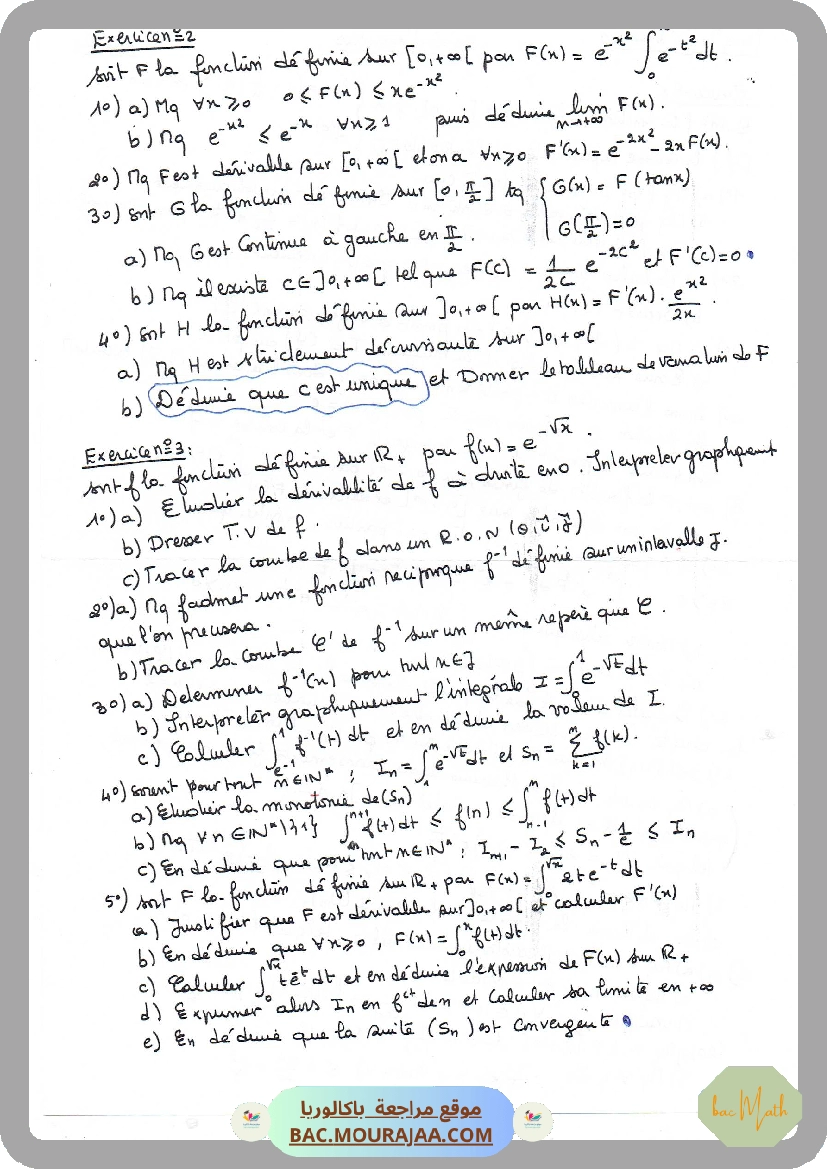 Exercice n°2
soit F la fonction définie sur [0,+∞[ par F(x) = e^{-x²} ∫_0 e^{-t²}dt .
1°) a) Mq ∀x ≥ 0 0 ≤ F(x) ≤ xe^{-x²}.
b) Mq e^{-x²} ≤ e^{-x} ∀x ≥ 1 puis déduire lim_{x→+∞} F(x).
2°) Mq F est dérivable sur [0,+∞[ et on a ∀x≥0 F'(x) = e^{-2x²} - 2x F(x).
3°) soit G la fonction définie sur [0, π/2] tq { G(x) = F(tanx)
G(π/2) = 0
a) Mq G est Continue à gauche en π/2 .
b) Mq il existe c ∈ ]0,+∞[ tel que F(c) = 1/2c e^{-2c²} et F'(c) = 0 .
4°) soit H la fonction définie sur ]0,+∞[ par H(x) = F'(x) . e^{x²}/2x .
a) Mq H est strictement décroissante sur ]0,+∞[
b) Déduire que c est unique et Donner le tableau de variation de F
Exercice n°3 :
soit f la fonction définie sur ℝ+ par f(x) = e^{-√x} .
1°) a) Etudier la dérivabilité de f à droite en 0 . Interpreter graphiquement
b) Dresser T.V de f .
c) Tracer la courbe de f dans un R.O.N (O,i⃗,j⃗)
2°) a) Mq f admet une fonction reciproque f⁻¹ définie sur un intervalle J.
que l'on precisera .
b) Tracer la courbe C' de f⁻¹ sur un même repère que C .
3°) a) Determiner f⁻¹(x) pour tout x ∈ J
b) Interpreter graphiquement l'intégrale I = ∫_0^1 e^{-√t} dt
c) Calculer ∫_{e^{-1}}^1 f⁻¹(t) dt et en déduire la valeur de I.
4°) soient pour tout n ∈ ℕ* ; I_n = ∫_1^n e^{-√t} dt et S_n = Σ_{k=1}^n f(k).
a) Etudier la monotonie de (S_n)
b) Mq ∀n ∈ ℕ* \ {1} ∫_n^{n+1} f(t) dt ≤ f(n) ≤ ∫_{n-1}^n f(t) dt
c) En déduire que pour tout n ∈ ℕ* ; I_{n+1} - I_2 ≤ S_n - 1/e ≤ I_n
5°) soit F la fonction définie sur ℝ+ par F(x) = ∫_0^{√x} 2te^{-t} dt
a) Justifier que F est dérivable sur ]0,+∞[ et calculer F'(x)
b) En déduire que ∀x ≥ 0 , F(x) = ∫_0^x f(t) dt .
c) Calculer ∫_0^{√x} te^{-t} dt et en déduire l'expression de F(x) sur ℝ+
d) Exprimer alors I_n en f^{ct} de n et Calculer sa limite en +∞
e) En déduire que la suite (S_n) est convergente .
موقع مراجعة باكالوريا
BAC.MOURAJAA.COM
bac Math